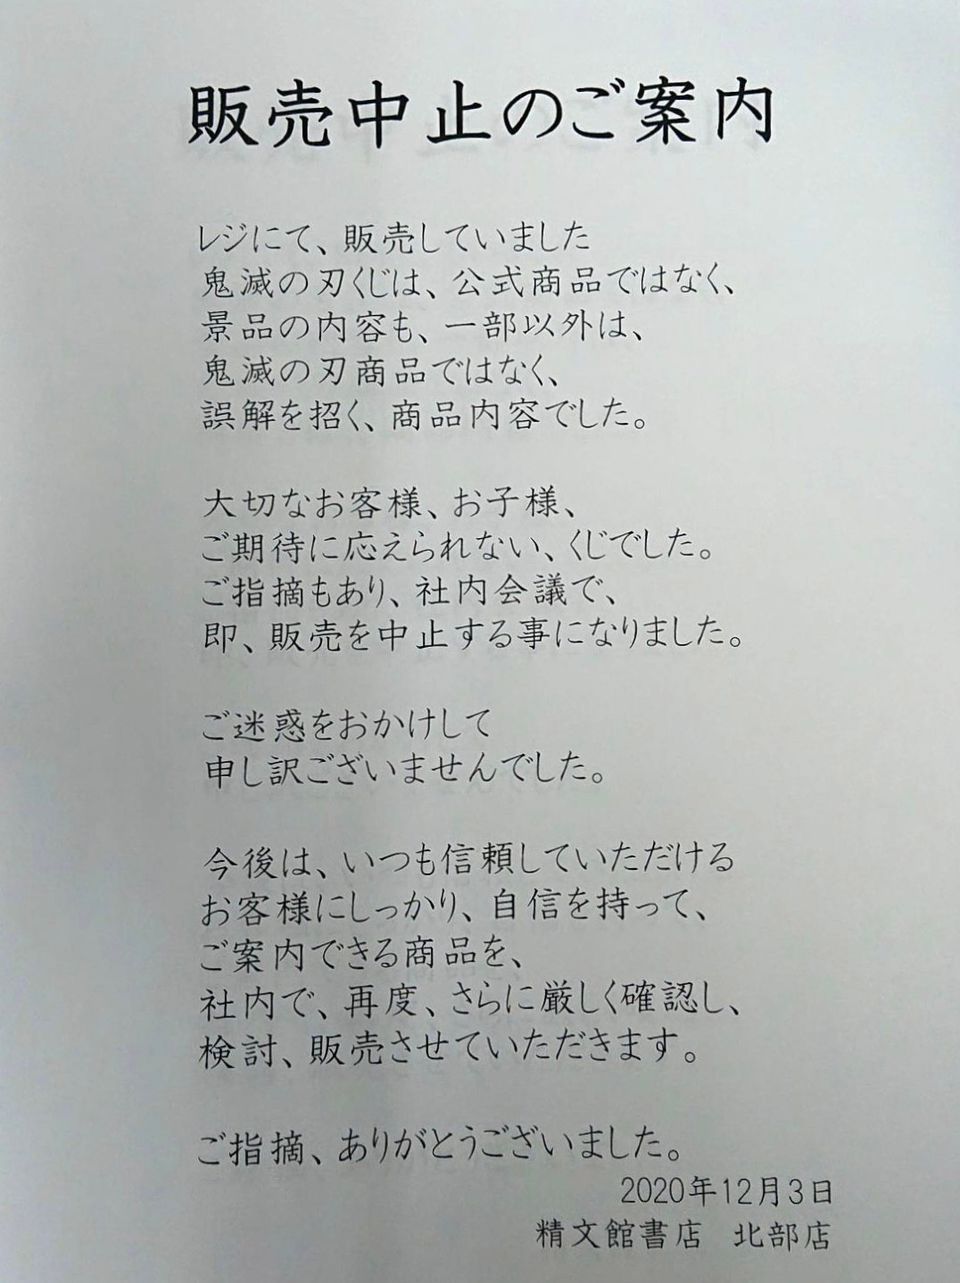 販売中止のご案内
レジにて、販売していました
鬼滅の刃くじは、公式商品ではなく、
景品の内容も、一部以外は、
鬼滅の刃商品ではなく、
誤解を招く、商品内容でした。
大切なお客様、お子様、
ご期待に応えられない、くじでした。
ご指摘もあり、社内会議で、
即、販売を中止する事になりました。
ご迷惑をおかけして
申し訳ございませんでした。
今後は、いつも信頼していただける
お客様にしっかり、自信を持って、
ご案内できる商品を、
社内で、再度、さらに厳しく確認し、
検討、販売させていただきます。
ご指摘、ありがとうございました。
2020年12月3日
精文館書店　北部店